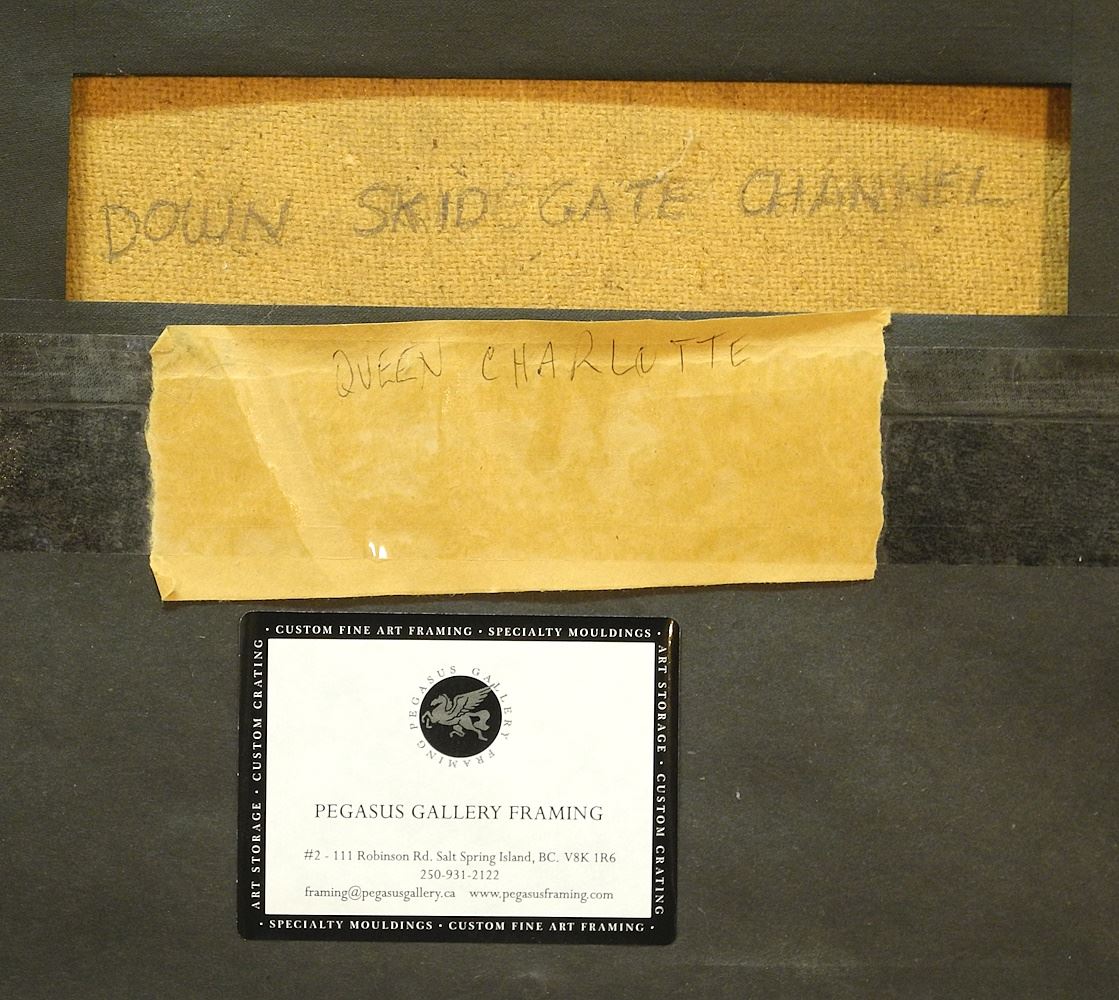 DOWN SKID GATE CHANNEL
QUEEN CHARLOTTE
· CUSTOM FINE ART FRAMING · SPECIALTY MOULDINGS ·
ART STORAGE · CUSTOM CRATING
ART STORAGE · CUSTOM CRATING
PEGASUS GALLERY FRAMING
PEGASUS GALLERY FRAMING
#2 - 111 Robinson Rd. Salt Spring Island, BC. V8K 1R6
250-931-2122
framing@pegasusgallery.ca www.pegasusframing.com
· SPECIALTY MOULDINGS · CUSTOM FINE ART FRAMING ·